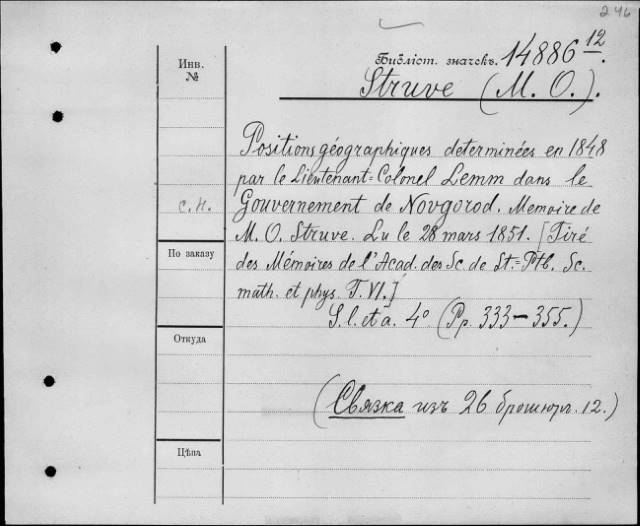 246
Инв.
№
Библіот. значекъ. 14886 12.
Struve (M. O.).
Positions géographiques determinées en 1848
par le Lieutenant=Colonel Lemm dans le
Gouvernement de Novgorod. Memoire de
с.н.
M. O. Struve. Lu le 28 mars 1851. [Tiré
По заказу
des Mémoires de l'Acad. des Sc. de St.=Ptb. Sc.
math. et phys. T. VI.]
S. l. et a. 4° (Pp. 333-355.)
Откуда
(Связка изъ 26 брошюръ. 12.)
Цѣна